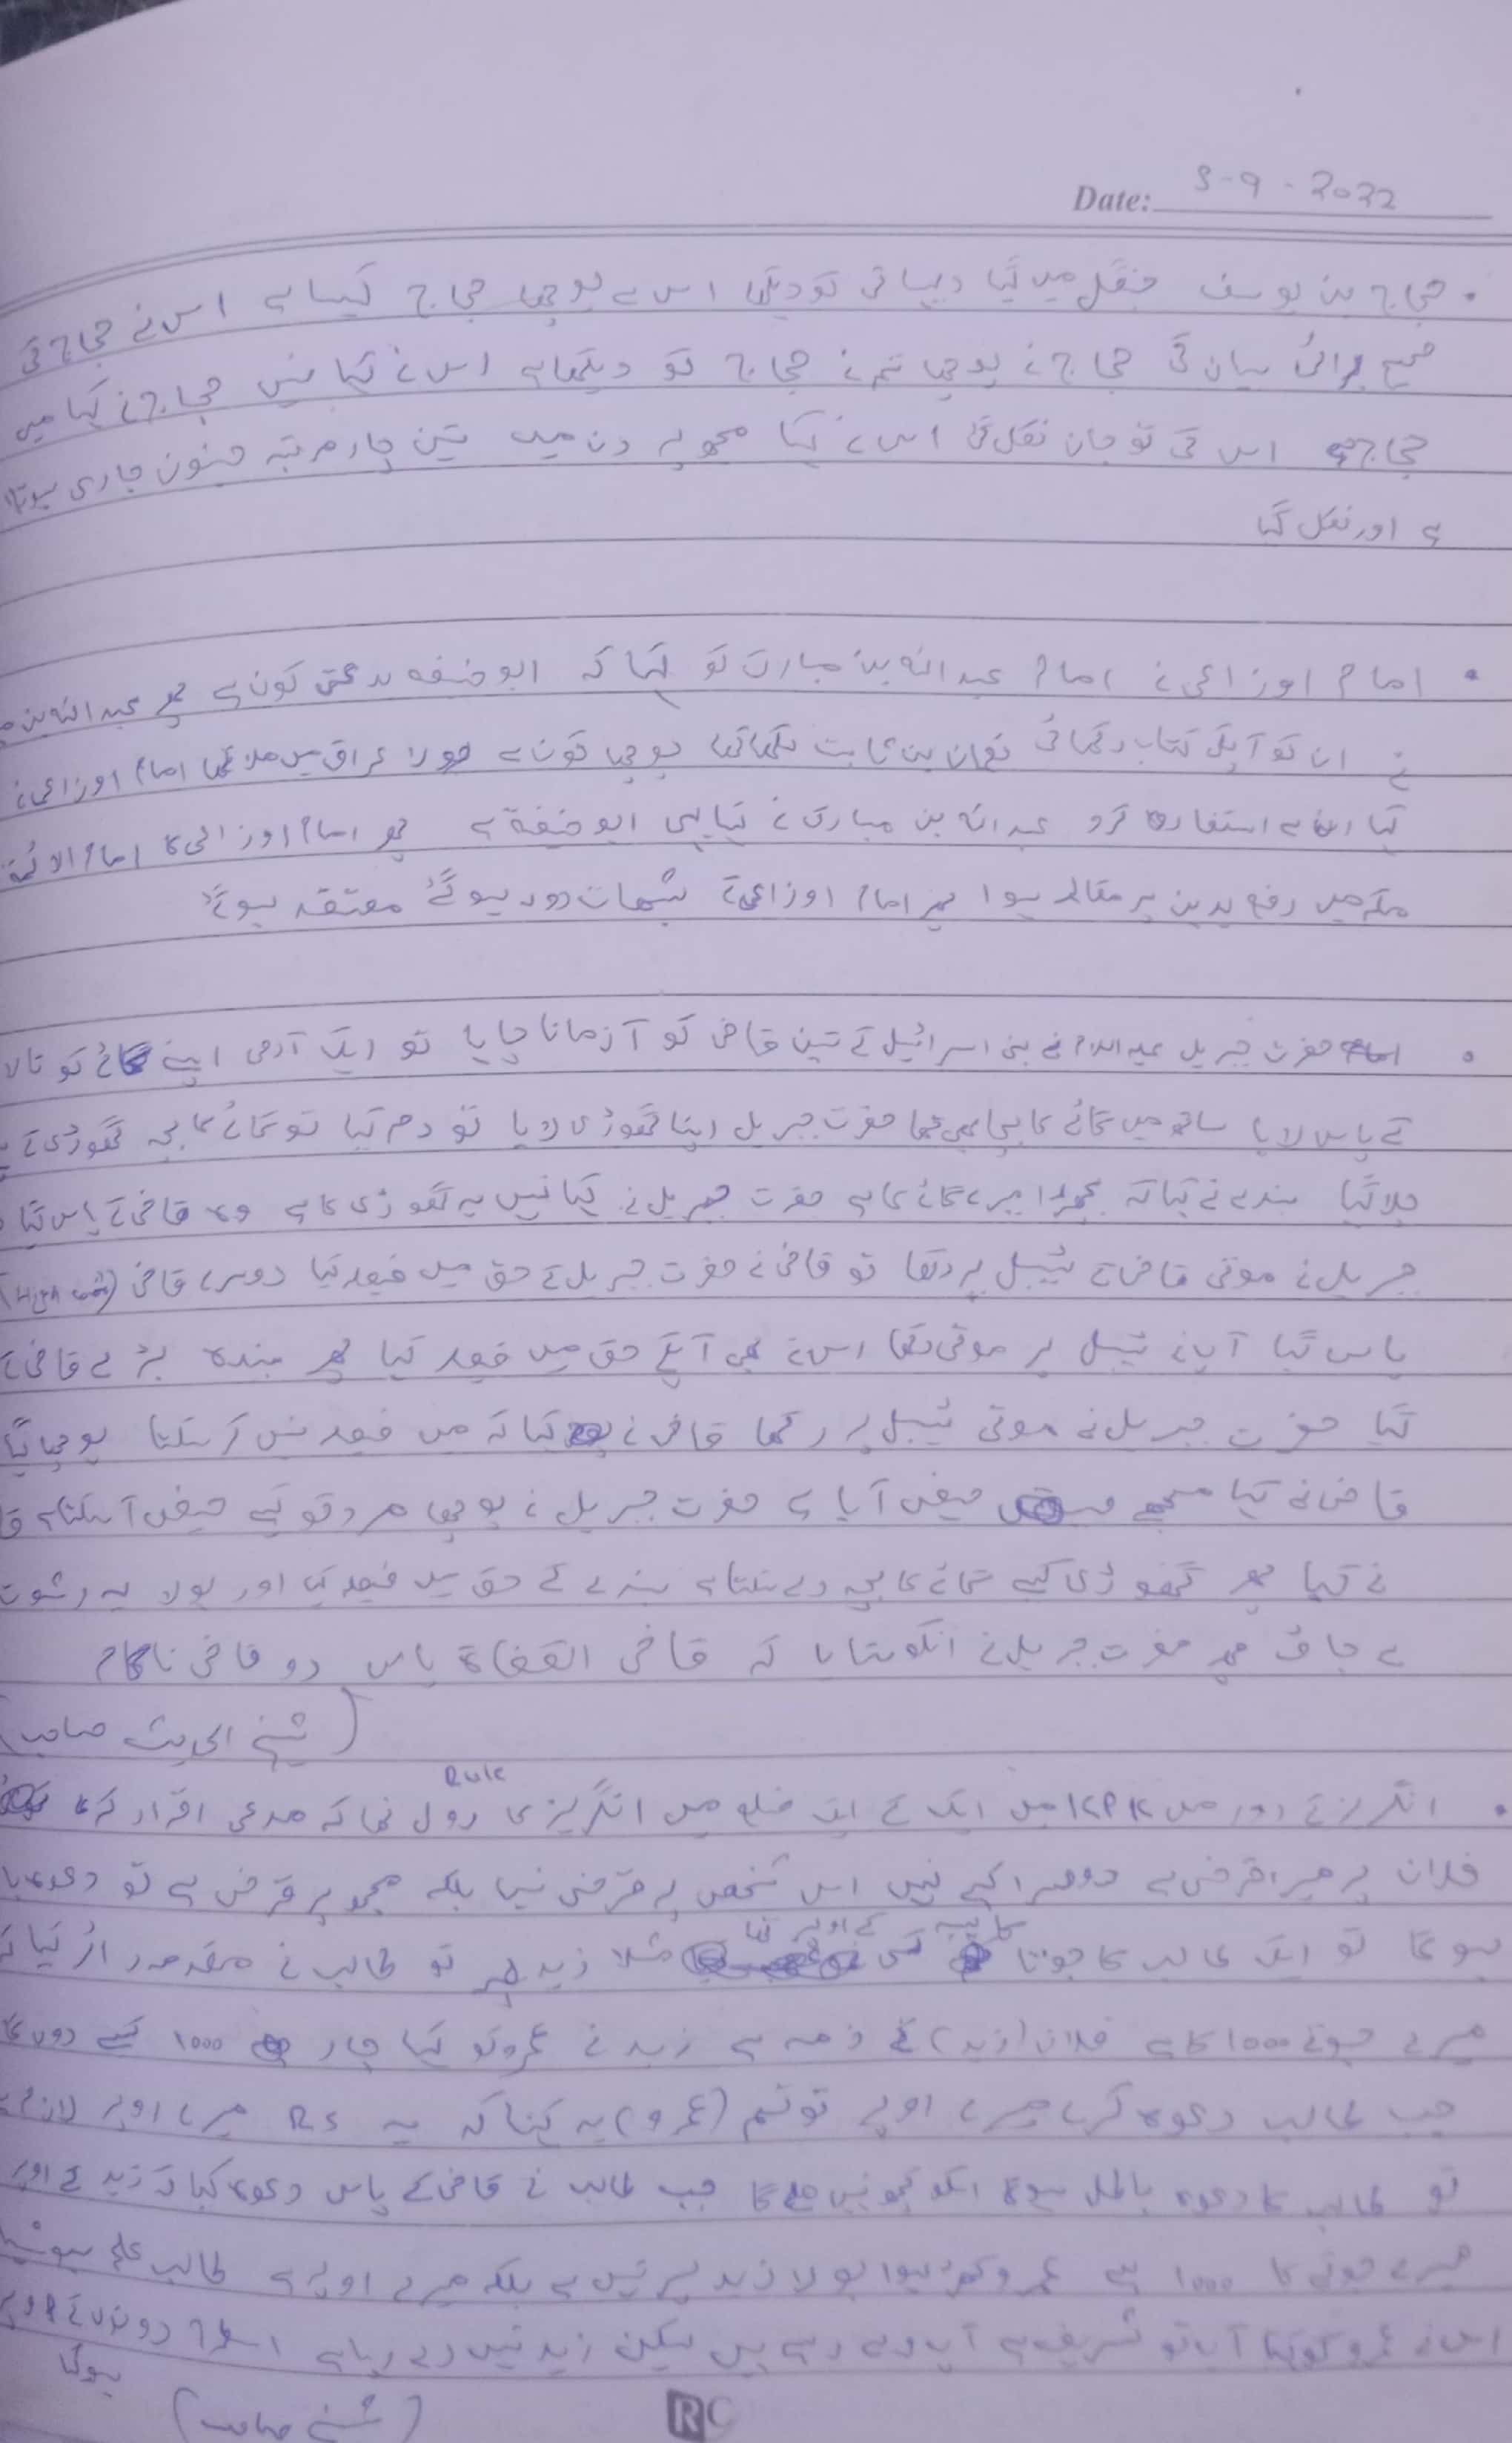 Date: 3-9-2022
• حجاج بن یوسف جنگل میں گیا دیہاتی کو دیکھا اس سے پوچھا حجاج کیسا ہے اس نے حجاج کی
برائی بیان کی حجاج نے پوچھا تم نے حجاج کو دیکھا ہے اس نے کہا نہیں حجاج نے کہا میں
حجاج اس کی تو جان نکل گئی اس نے کہا مجھ پہ دن میں تین چار مرتبہ جنون جاری ہوتا
ہے اور نکل گیا
• امام اوزاعی نے امام عبداللہ بن مبارک کو کہا کہ ابو حنیفہ بدعتی کون ہے پھر عبداللہ بن
نے ان کو آپکی کتاب دکھائی نعمان بن ثابت لکھا تھا پوچھا کون ہے بولا عراق میں ملا تھا امام اوزاعی نے
کہا ان سے استفادہ کرو عبداللہ بن مبارک نے کہا یہی ابو حنیفة ہے پھر امام اوزاعی کا امام الائمة
مکہ میں رفع یدین پر مقالمہ ہوا پھر امام اوزاعی کے شبہات دور ہوگئے معتقد ہوگئے
• حضرت جبریل علیہ السلام نے بنی اسرائیل کے تین قاضی کو آزمانا چاہا تو ایک آدمی اپنے گائے کو تالا
کے پاس لایا ساتھ میں گائے کا بچا بھی تھا حضرت جبریل اپنا گھوڑی لایا تو دم کیا تو گائے کا بچہ گھوڑی کے
چلا گیا بندے نے کہا کہ بچھڑا میرے گائے کا ہے حضرت جبریل نے کہا نہیں یہ گھوڑی کا ہے وہ قاضی کے پاس گیا
جبریل نے موتی قاضی کے ٹیبل پر رکھا تو قاضی نے حضرت جبریل کے حق میں فیصلہ کیا دوسرے قاضی
پاس گیا آپ نے ٹیبل پر موتی رکھا اس نے بھی آپکے حق میں فیصلہ کیا پھر بندہ بڑے قاضی کے
گیا حضرت جبریل نے موتی ٹیبل پر رکھا قاضی نے کہا کہ میں فیصلہ نہیں کر سکتا پوچھا گیا
قاضی نے کہا مجھے حیض آیا ہے حضرت جبریل نے پوچھا مرد کو کیسے حیض آ سکتا ہے
نے کہا پھر گھوڑی کیسے گائے کا بچہ دے سکتا ہے بندے کے حق میں فیصلہ کیا اور بولا یہ رشوت
لے جاؤ پھر حضرت جبریل نے انکو بتایا کہ قاضی القضاة پاس دو قاضی ناکام
(شیخ الحدیث صاحب)
• انگریز کے دور میں KPK میں ایک کے ایک ضلع میں انگریزی کا رول Rule تھا کہ مدعی اقرار کرے گا
فلان پر میرا قرض ہے دوسرا کہے نہیں اس شخص پہ قرض نہیں بلکہ مجھ پر قرض ہے تو دعوہ
ہوگا تو ایک طالب کا جوتا کسی مثلا زید تو طالب نے مقدمہ دائر کیا کہ
میرے جوتے 1000 کا ہے فلان (زید) کے ذمہ ہے زید نے عمرو کو کہا 1000 کیسے دوں گا
جب طالب دعوہ کرے میرے اوپر تو تم (عمرو) یہ کہنا کہ یہ Rs میرے اوپر لازم
تو طالب کا دعوہ باطل ہوگا اسکو کچھ نہیں ملے گا جب طالب نے قاضی کے پاس دعوہ کیا کہ زید کے اوپر
میرے جوتے کا 1000 ہے عمرو کھڑا ہوا بولا زید پر نہیں ہے بلکہ میرے اوپر ہے طالب علم
اس نے عمرو کو کہا آپ تو شریف ہے آپ دے رہے ہیں لیکن زید نہیں دے رہا ہے اسطرح دونوں کے اوپر
ہوگیا
(شیخ صاحب)
RC